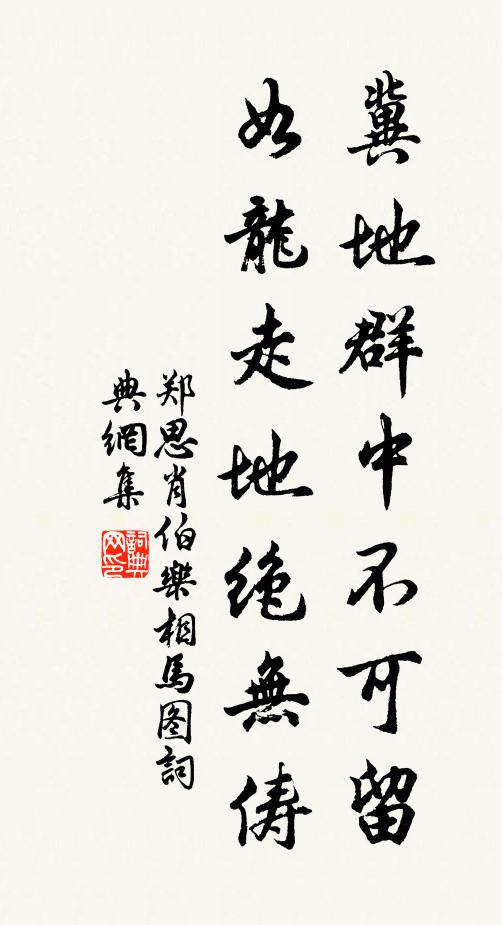 冀地群中不可留
如龍走地絶無儔
郑思肖伯樂相馬图詞
典網集
詞典
网印